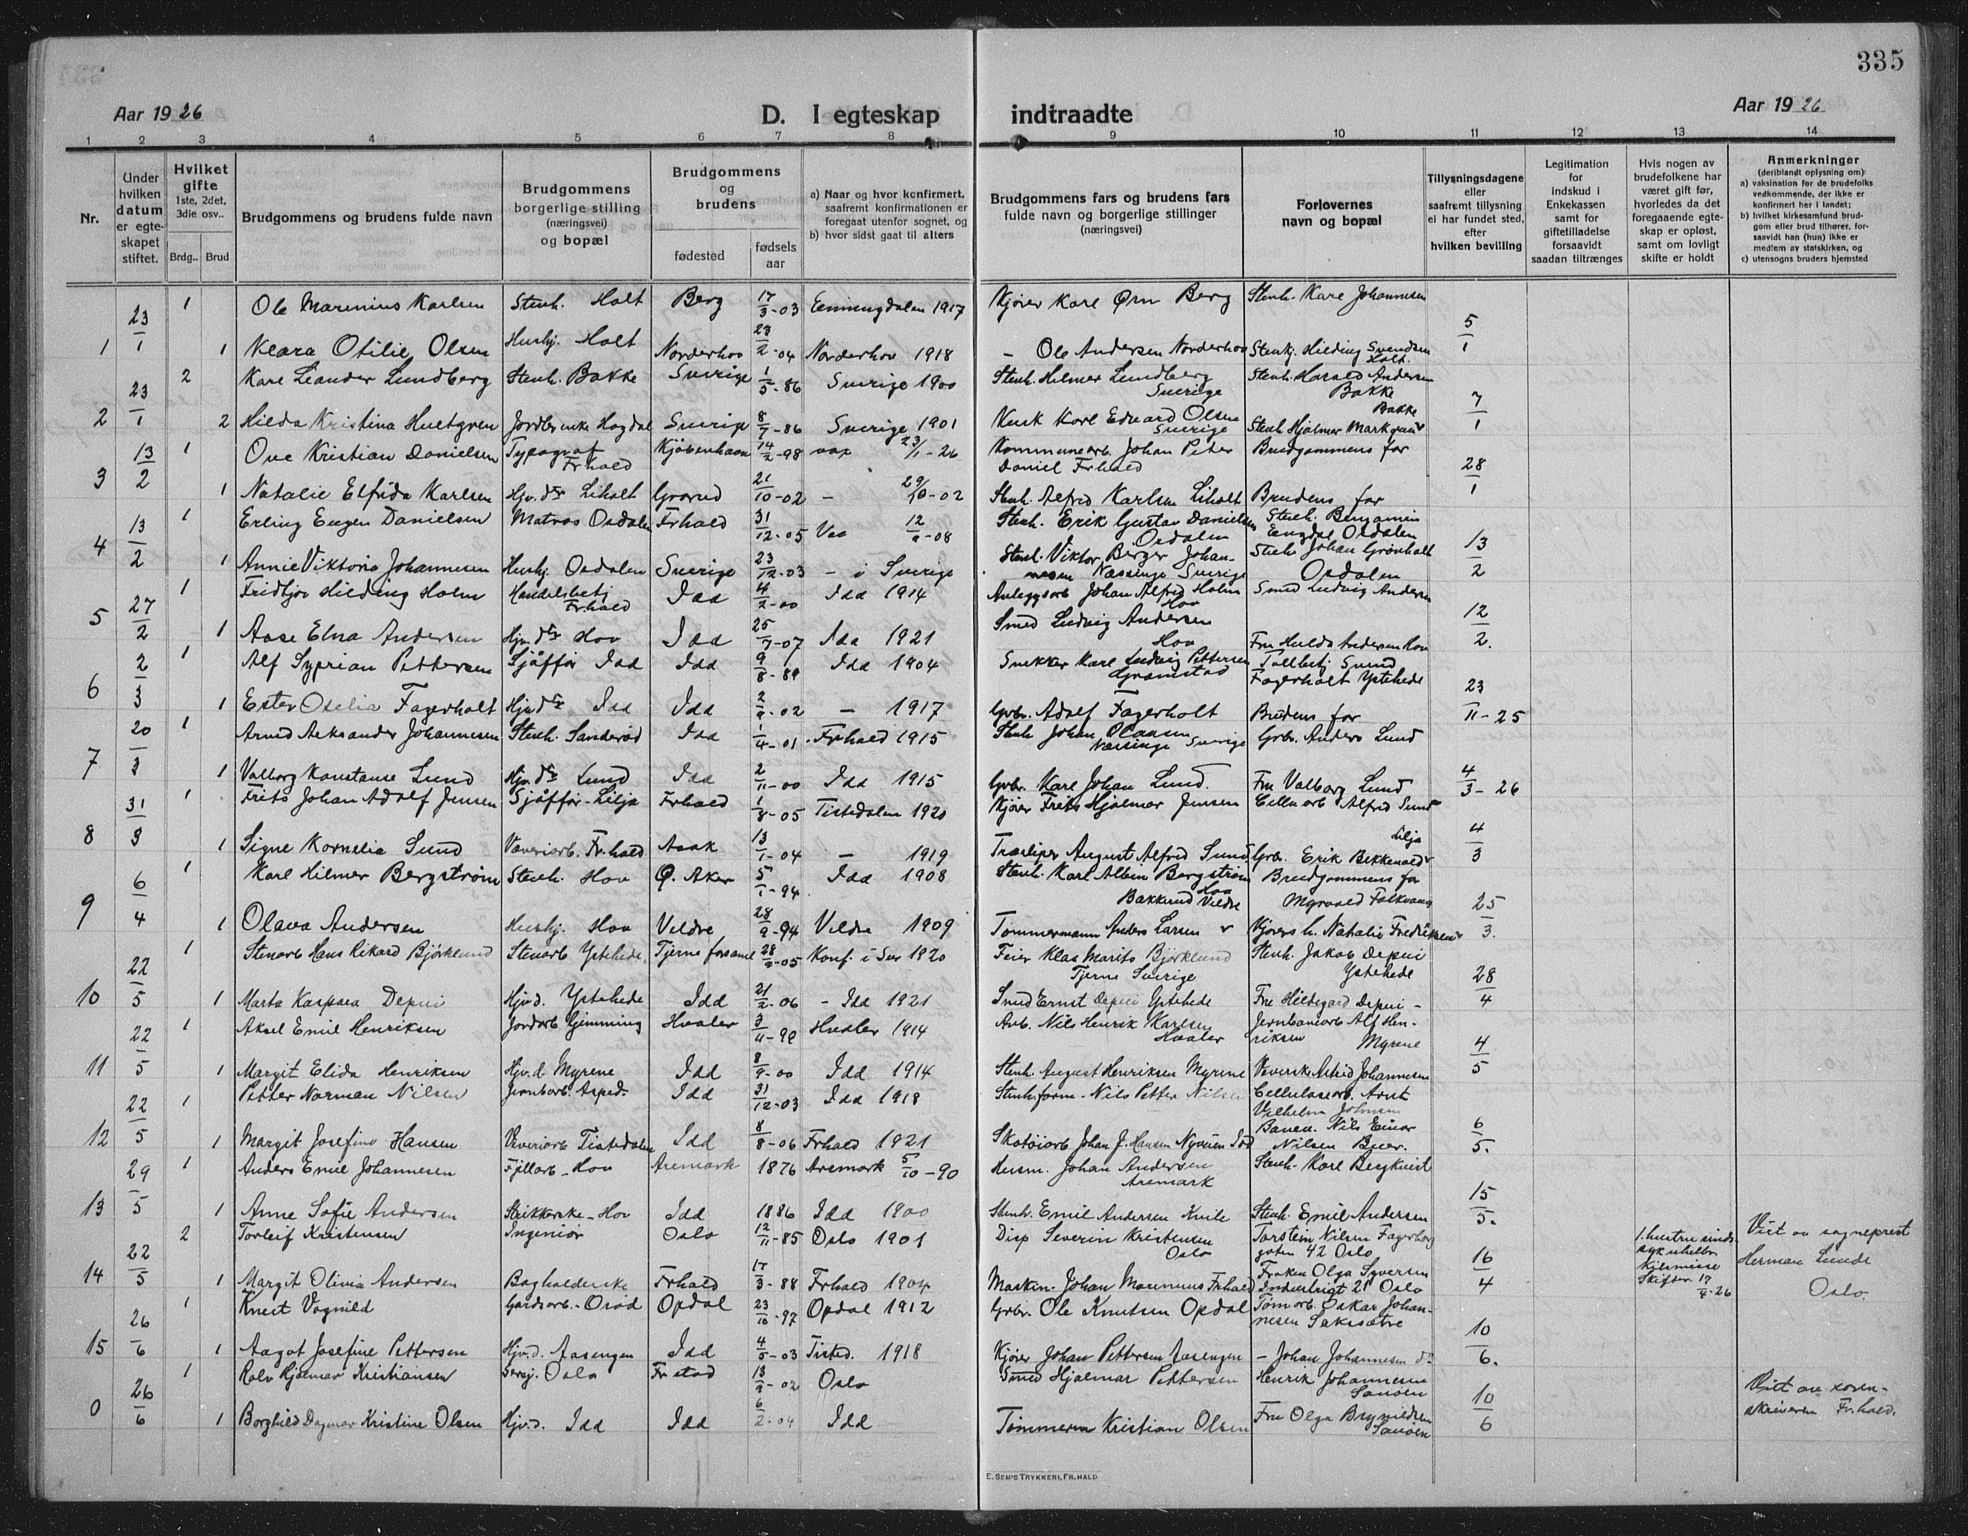 335
Aar 1926 D. I egteskap indtraadte Aar 1926
1 2 3 4 5 6 7 8 9 10 11 12 13 14
Nr.
Under hvilken datum er egteskapet stiftet.
Hvilket gifte 1ste, 2det, 3die osv.. Brdg.. Brud
Brudgommens og brudens fulde navn
Brudgommens borgerlige stilling (næringsvei) og bopæl
Brudgommens og brudens fødested fødsels aar
a) Naar og hvor konfirmert, saafremt konfirmationen er foregaat utenfor sognet, og
b) hvor sidst gaat til alters
Brudgommens fars og brudens fars fulde navn og borgerlige stillinger (næringsvei)
Forlovernes navn og bopæl
Tillysningsdagene eller saafremt tillysning ei har fundet sted, efter hvilken bevilling
Legitimation for indskud i Enkekassen samt for giftetilladelse forsaavidt saadan tiltrænges
Hvis nogen av brudefolkene har været gift før, hvorledes da det foregaaende egteskap er opløst, samt om lovligt skifte er holdt
Anmerkninger (deriblandt oplysning om)
a) vaksination for de brudefolks vedkommende, der ikke er konfirmert her i landet;
b) hvilket kirkesamfund brudgom eller brud tilhører, forsaavidt han (hun) ikke er medlem av statskirken, og
c) utensogns bruders hjemsted
23/1 1 Ole Marinius Karlsen Stenh. Holt Berg 17/3-03 Enningdalen 1917 Kjører Karl Ørn Berg Stenh. Kare Johannesen 5/1
1 1 Klara Otilie Olsen Hushj. Holt Norderhov 23/2-04 Norderhov 1918 – Ole Andersen Norderhov Stenhj. Hilding Svendsen Holt.
23/1 2 Karl Leander Lundberg Stenh. Bakke Sverige 1/5-86 Sverige 1900 Stenh. Hilmer Lundberg Sverige Stenh. Harald Andersen Bakke 7/1
2 2 Hilda Kristina Hultgren Hogdal Sverige 8/7-86 Sverige 1901 Karl Edvard Olsen Sverige Stenh Hjalmar Bakke
13/2 1 Ove Kristian Danielsen Typograf Frhald Kjøbenhavn 14/2-98 vax 23/1-26 Kommunearb. Johan Peter Daniel Frhald Brudgommens far 28/1
3 1 Natalie Elfrida Karlsen Hjv. d. Liholt 21/10-02 – 29/10-02 Stenh. Alfred Karlsen Liholt Brudens far
13/2 1 Erling Eugen Danielsen Matros Osdalen Frhald 31/12-05 Vac 12/9-08 Stenh. Erik Gustav Danielsen Osdalen Stenh. Benjamin Engdal Osdalen 13/2
4 1 Annie Viktoria Johannesen Hushj. Osdalen Sverige 23/12-03 – i Sverige Stenh. Viktor Berger Johannesen Næssinge Sverige Stenh Johan Grönholt Osdalen
27/2 1 Fridtjov Hilding Holm Handelsbetj Frhald Idd 4/2-00 Idd 1914 Anleggsarb Johan Alfred Holm Hov Smed Ludvig Andersen 12/2.
5 1 Aase Elna Andersen Hjv. d. Hov Idd 25/7-07 Idd 1921 Smed Ludvig Andersen Hov Fru Hulda Andersen Hov
2/3 1 Alf Syprian Pettersen Sjåffør Idd Idd 9/8-89 Idd 1904 Snekker Karl Ludvig Pettersen Grønstad Tollbetj. Svend Fagerholt Ystehede 23/11-25
6 1 Ester Fagerholt Hjv. d. Idd Idd 2/9-02 – 1917 Grbr. Adolf Fagerholt Brudens far
20/3 1 Arvid Aleksander Johannesen Stenh. Sanderød Idd 1/4-01 Frhald 1915 Stenh Johan Næssinge Sverige Grbr. Anders Lund 4/3-26
7 1 Valborg Konstanse Lund Hjv. d. Lund Idd 2/11-00 Idd 1915 Grbr. Karl Johan Lund. Fru Valborg Lund
31/3 1 Frits Johan Adolf Jensen Sjåffør-Lilja Frhald 1/8-05 Tistedalen 1920 Kjører Frits Hjalmar Jensen Cellu arb Alfred Sund Lilja 4/3
8 1 Signe Kornelia Sund Væveriarb. Fr.hald Asak 13/1-04 – 1919 Træsliper August Alfred Sund Grb. Erik Bekkevold
6/4 1 Karl Hilmer Bergstrøm Stenh. Hov Ø. Aker 5/1-94 Idd 1908 Stenh. Karl Albin Bergstrøm Hov Brudgommens far 25/3.
9 1 Olava Andersen Hushj. Hov Veldre 28/9-94 Veldre 1909 Bakkerud Veldre Tømmermann Anders Larsen Myrvold Folkvang Kjørers h. Natalie Fredriksen
22/5 1 Stenarb Hans Rikard Björklund Stenarb Ystehede Tjerne forsaml 28/9-05 Konf. i Sve 1920 Feier Klas Marits Björklund Tjerne Sverige Stenh. Jakob Depui Ystehede 28/4
10 1 Marta Kaspara Depui Hjv.d. Ystehede Idd 21/2-06 – Idd 1921 Smed Ernst Depui Ystehede Fru Hildegard Depui –
22/5 1 Aksel Emil Henriksen Jordarb Gjemming Hvaler 3/11-99 Hvaler 1914 Arb. Nils Henrik Karlsen Hvaler Jernbanearb Alf Henriksen Myrene 4/5
11 1 Margit Elida Henriksen Hjv. d Myrene Idd 8/9-00 Idd 1914 Stenh. August Henriksen Myrene Astrid Johannesen
22/5 1 Petter Norman Nilsen Jernbarb. Asped. Idd 31/12-03 Idd 1918 Stenh.form – Nils Petter Nilsen Cellulosearb. Arnt Vilhelm Johnsen 6/5.
12 1 Margit Josefine Hansen Væveriarb Tistedalen Idd 8/8-06 Frhald 1921 Skotøiarb Johan J. Hansen Nyveien Idd Banev. Nils Einar Nilsen Bjer.
29/5 1 Anders Emil Johannesen Fjellarb – Hov Aremark 1876 Aremark 5/10-90 Husm. Johan Andersen Aremark Stenh. Karl Bergkvist 15/5.
13 1 Anne Sofie Andersen Strikkerske – Hov Idd 1886 Idd 1900 Stenh. Emil Andersen Kvile Stenh. Emil Andersen
22/5 2 Torleif Kristensen Ingeniør Oslo 12/11-85 Oslo 1901 Disp Severin Kristensen Oslo Torstein Nilsen Fagerborggaten 42 Oslo 16/4 1. hustru sindssyk uhelbr. Skifte 17/4-26 Viet av sogneprest Herman Lunde Oslo.
14 1 Margit Olivia Andersen Bogholderske Frhald 17/3-88 Frhald 1904 Maskin. Johan Marinius Frhald Frøken Olga Syversen 21 Oslo
26/6 1 Knut Vognild Gardsarb – Orød Opdal 23/10-97 Opdal 1912 Grbr. Ole Knutsen Opdal Tømarb. Oskar Johannesen Saksæstre 10/6.
15 1 Aagot Josefine Pettersen Hjv.d. Aasengen Idd 4/5-03 Tisted. 1918 Kjører Johan Pettersen Aasengen – Johan Johannesen do
26/6 1 Rolv Hjalmar Kristiansen Oslo Frstad 13/9-02 Oslo Smed Hjalmar Pettersen Henrik Johannesen Sanøen 10/6 Viet av sorenskriveren Frhald.
0 1 Borghild Dagmar Kristine Olsen Hjv.d. Idd Idd 6/2-04 Idd Tømmerm Kristian Olsen Fru Olga Brynildsen Sanøen
E. SEM'S TRYKKERI, FR.HALD